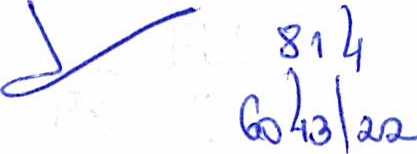 814
6043/22